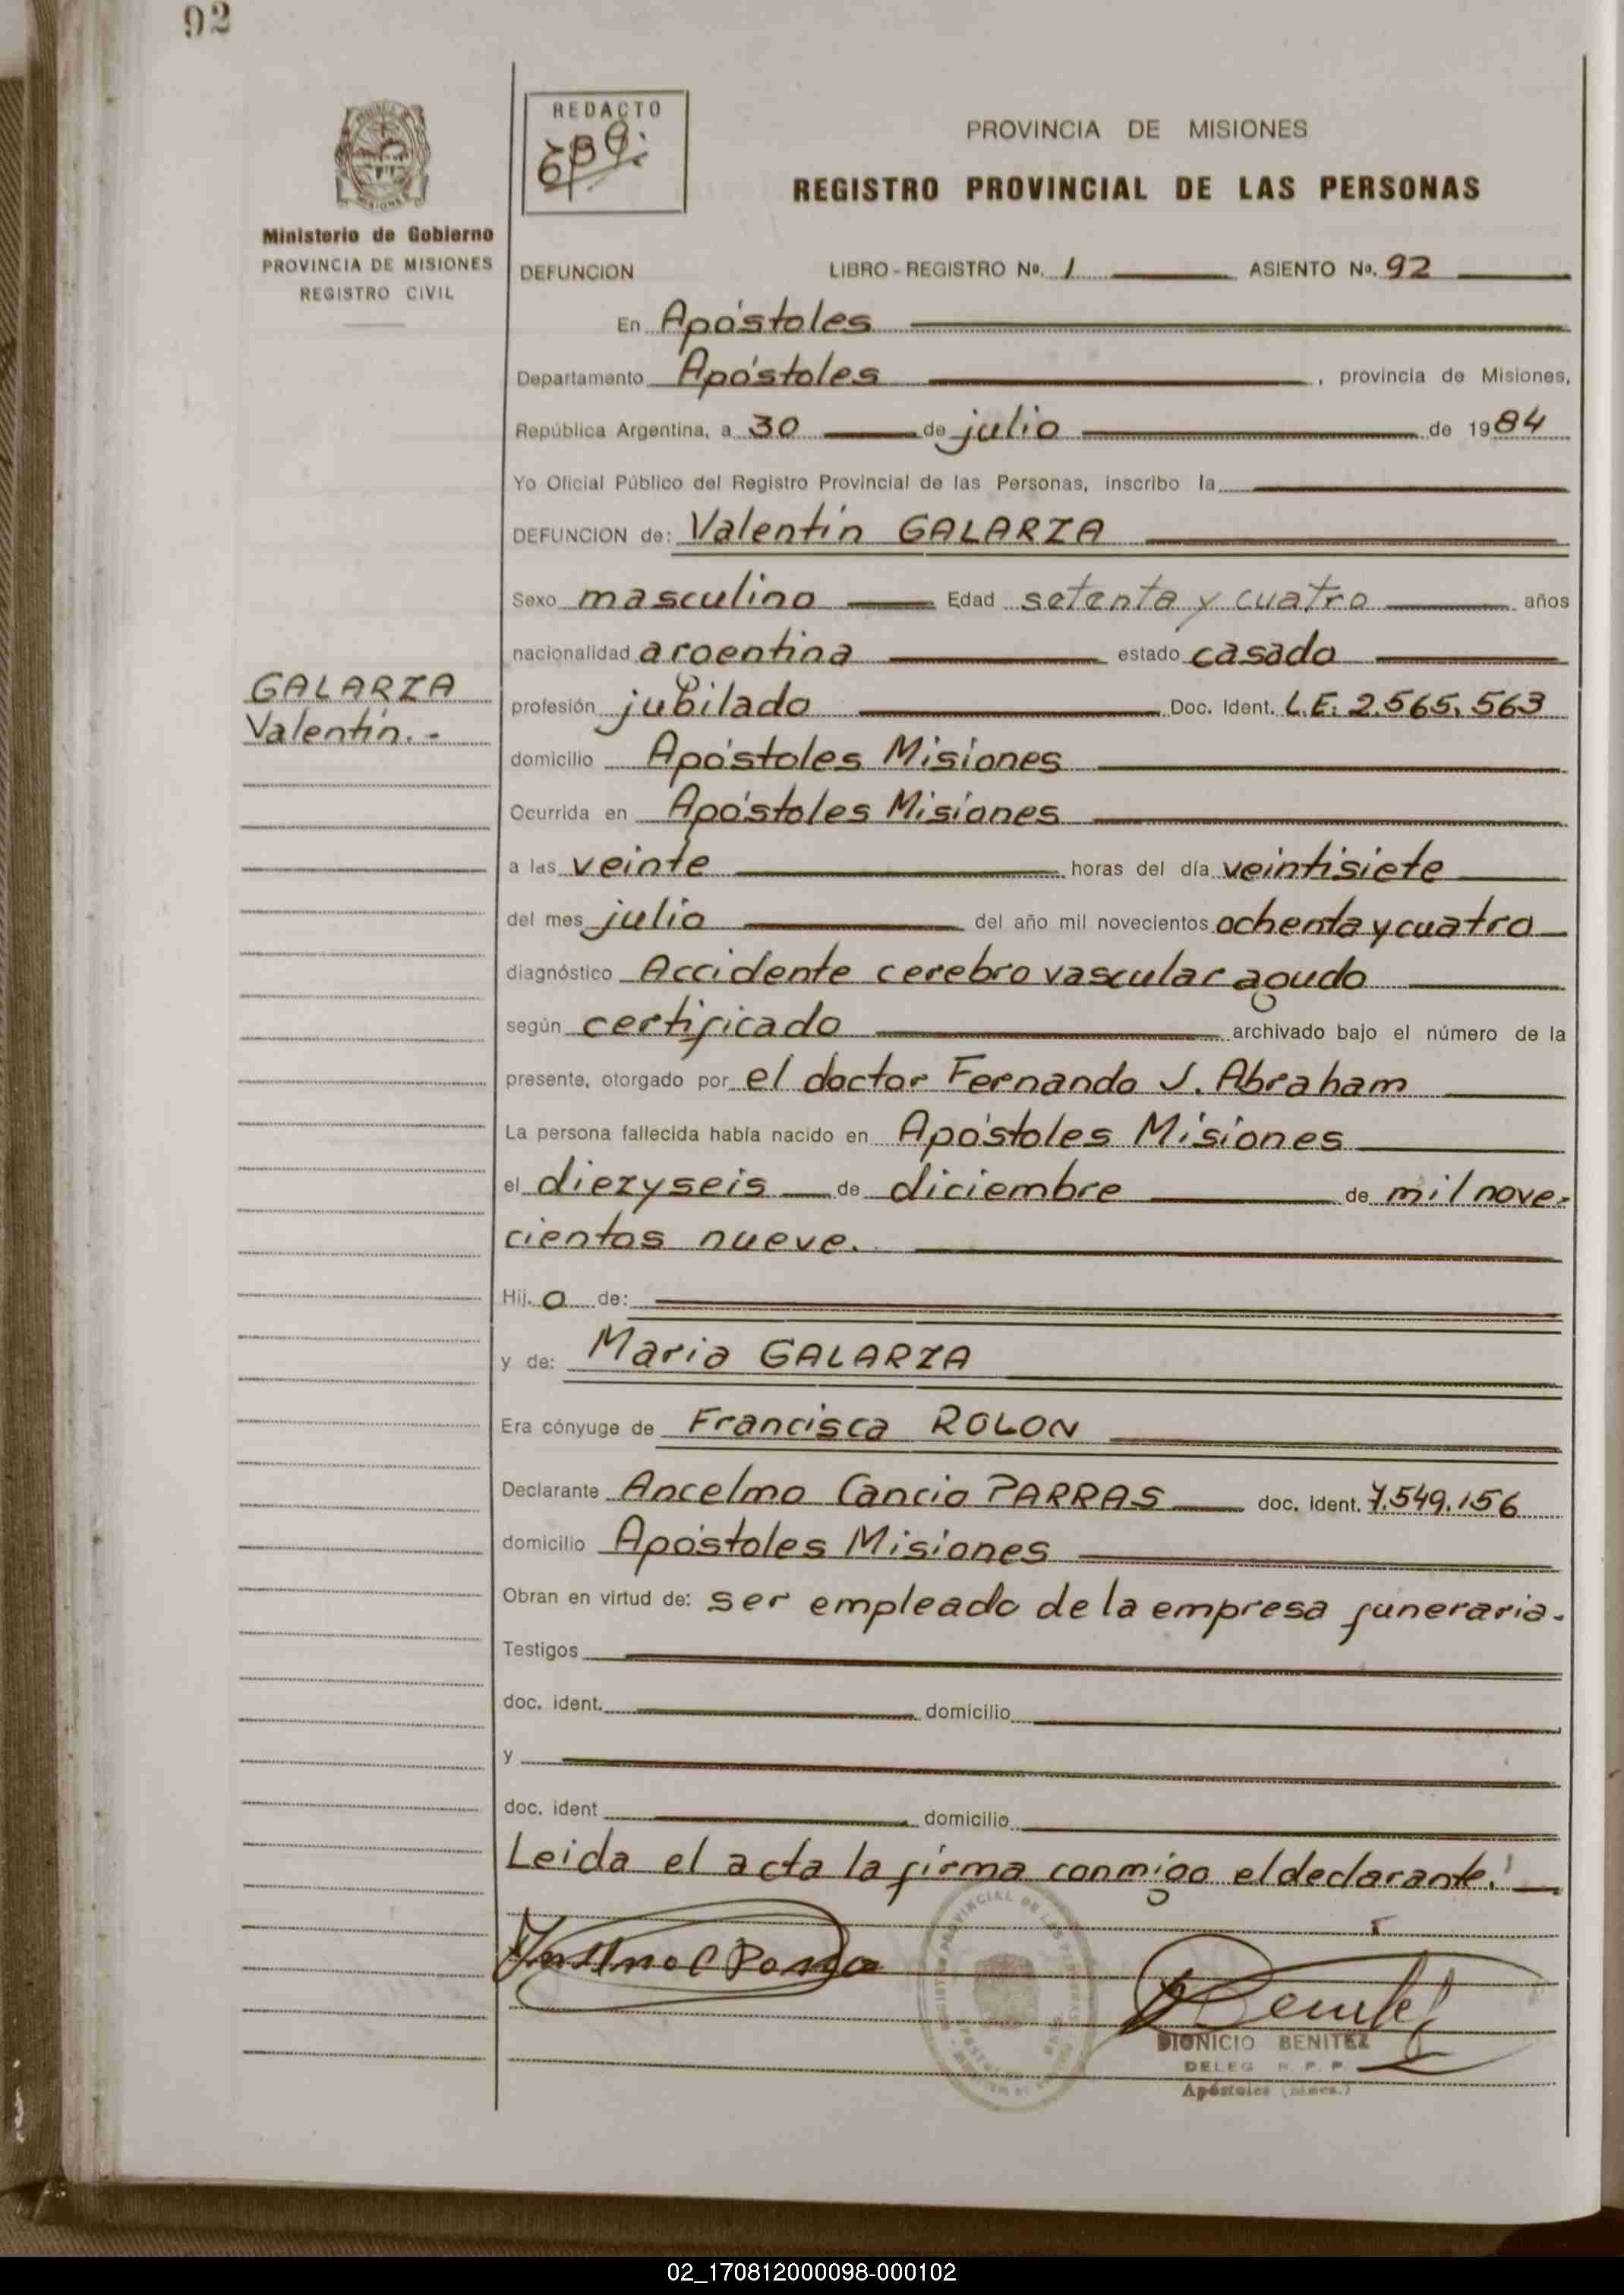 92
REDACTO
PROVINCIA DE MISIONES
REGISTRO PROVINCIAL DE LAS PERSONAS
Ministerio de Gobierno
PROVINCIA DE MISIONES
REGISTRO CIVIL
DEFUNCION LIBRO - REGISTRO No. 1 ASIENTO No. 92
En Apóstoles
Departamento Apóstoles, provincia de Misiones,
República Argentina, a 30 de julio de 1984
Yo Oficial Público del Registro Provincial de las Personas, inscribo la
DEFUNCION de: Valentín GALARZA
Sexo masculino Edad setenta y cuatro años
nacionalidad argentina estado casado
GALARZA
Valentín.-
profesión jubilado Doc. Ident. L.E: 2.565.563
domicilio Apóstoles Misiones
Ocurrida en Apóstoles Misiones
a las veinte horas del día veintisiete
del mes julio del año mil novecientos ochenta y cuatro
diagnóstico Accidente cerebro vascular agudo
según certificado archivado bajo el número de la
presente, otorgado por el doctor Fernando J. Abraham
La persona fallecida había nacido en Apóstoles Misiones
el diezyseis de diciembre de mil nove-
cientos nueve.
Hij o de:
y de: Maria GALARZA
Era cónyuge de Francisca ROLON
Declarante Ancelmo Cancio PARRAS doc. ident. 7.549.156
domicilio Apóstoles Misiones
Obran en virtud de: ser empleado de la empresa funeraria.
Testigos
doc. ident. domicilio
y
doc. ident domicilio
Leida el acta la firma conmigo el declarante.
DIONICIO BENITEZ
DELEG R. P. P.
Apóstoles
02_170812000098-000102